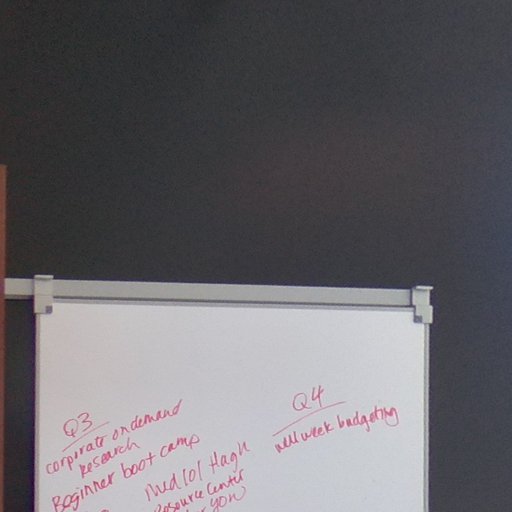 Q3
corporate on demand
research
Beginner boot camp
Med 101
Resource Center
Q4
week budgeting